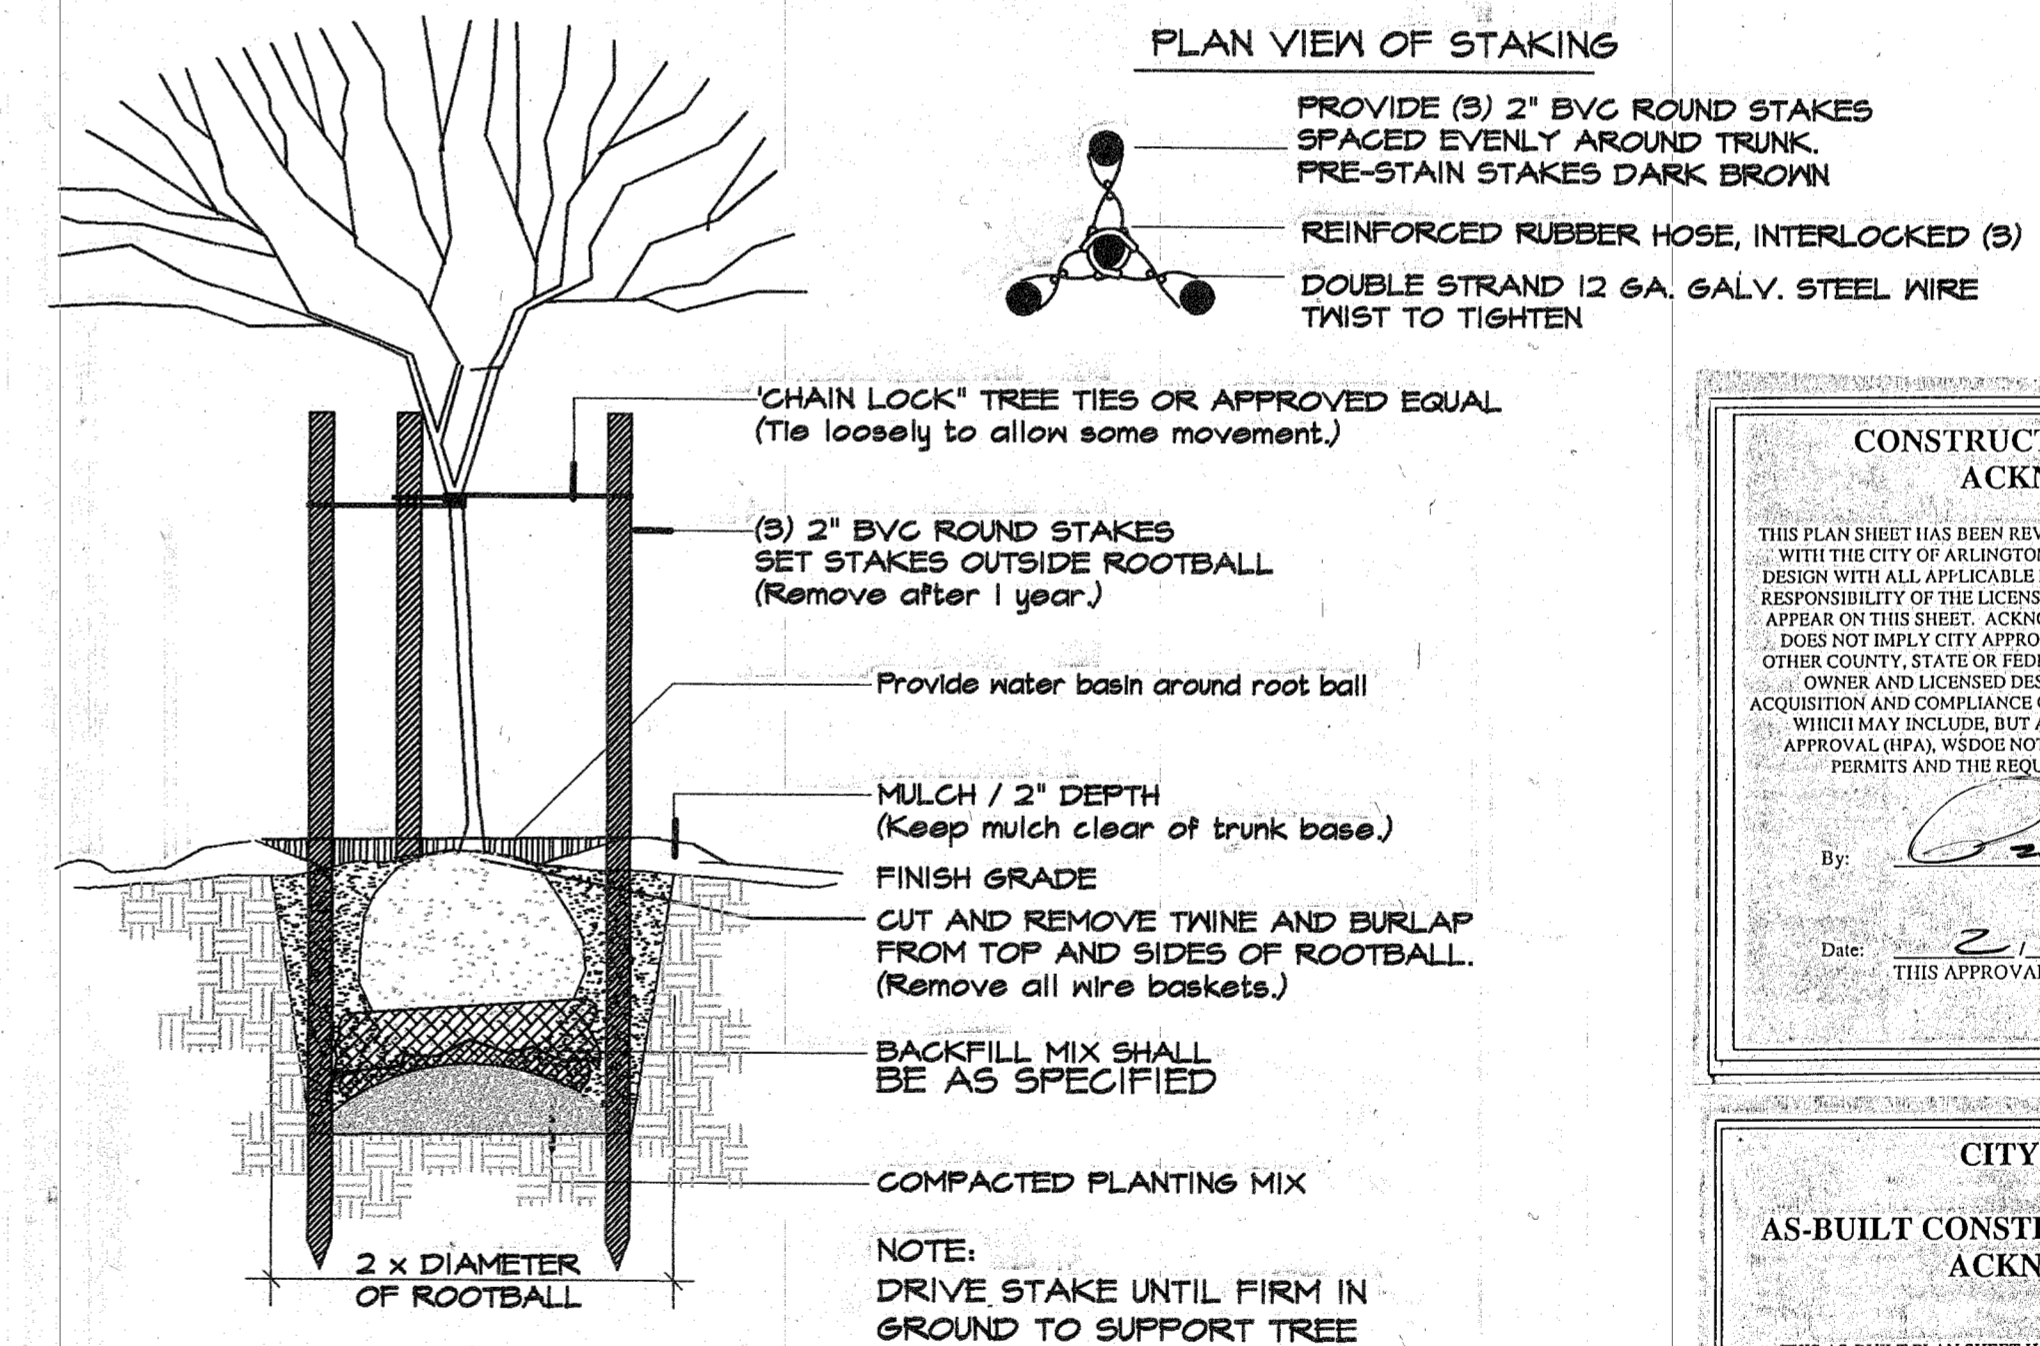 PLAN VIEW OF STAKING
PROVIDE (3) 2" BVC ROUND STAKES
SPACED EVENLY AROUND TRUNK.
PRE-STAIN STAKES DARK BROWN
REINFORCED RUBBER HOSE, INTERLOCKED (3)
DOUBLE STRAND 12 GA. GALV. STEEL WIRE
TWIST TO TIGHTEN
'CHAIN LOCK" TREE TIES OR APPROVED EQUAL
(Tie loosely to allow some movement.)
(3) 2" BVC ROUND STAKES
SET STAKES OUTSIDE ROOTBALL
(Remove after 1 year.)
Provide water basin around root ball
MULCH / 2" DEPTH
(Keep mulch clear of trunk base.)
FINISH GRADE
CUT AND REMOVE TWINE AND BURLAP
FROM TOP AND SIDES OF ROOTBALL.
(Remove all wire baskets.)
BACKFILL MIX SHALL
BE AS SPECIFIED
COMPACTED PLANTING MIX
2 x DIAMETER
OF ROOTBALL
NOTE:
DRIVE STAKE UNTIL FIRM IN
GROUND TO SUPPORT TREE
CONSTRUCT
ACKN
THIS PLAN SHEET HAS BEEN REV
WITH THE CITY OF ARLINGTON
DESIGN WITH ALL APPLICABLE
RESPONSIBILITY OF THE LICENS
APPEAR ON THIS SHEET. ACKNO
DOES NOT IMPLY CITY APPRO
OTHER COUNTY, STATE OR FEDE
OWNER AND LICENSED DES
ACQUISITION AND COMPLIANCE
WHICH MAY INCLUDE, BUT
APPROVAL (HPA), WSDOE NOT
PERMITS AND THE REQU
By:
Date: 2/
THIS APPROVAL
CITY
AS-BUILT CONSTR
ACKN